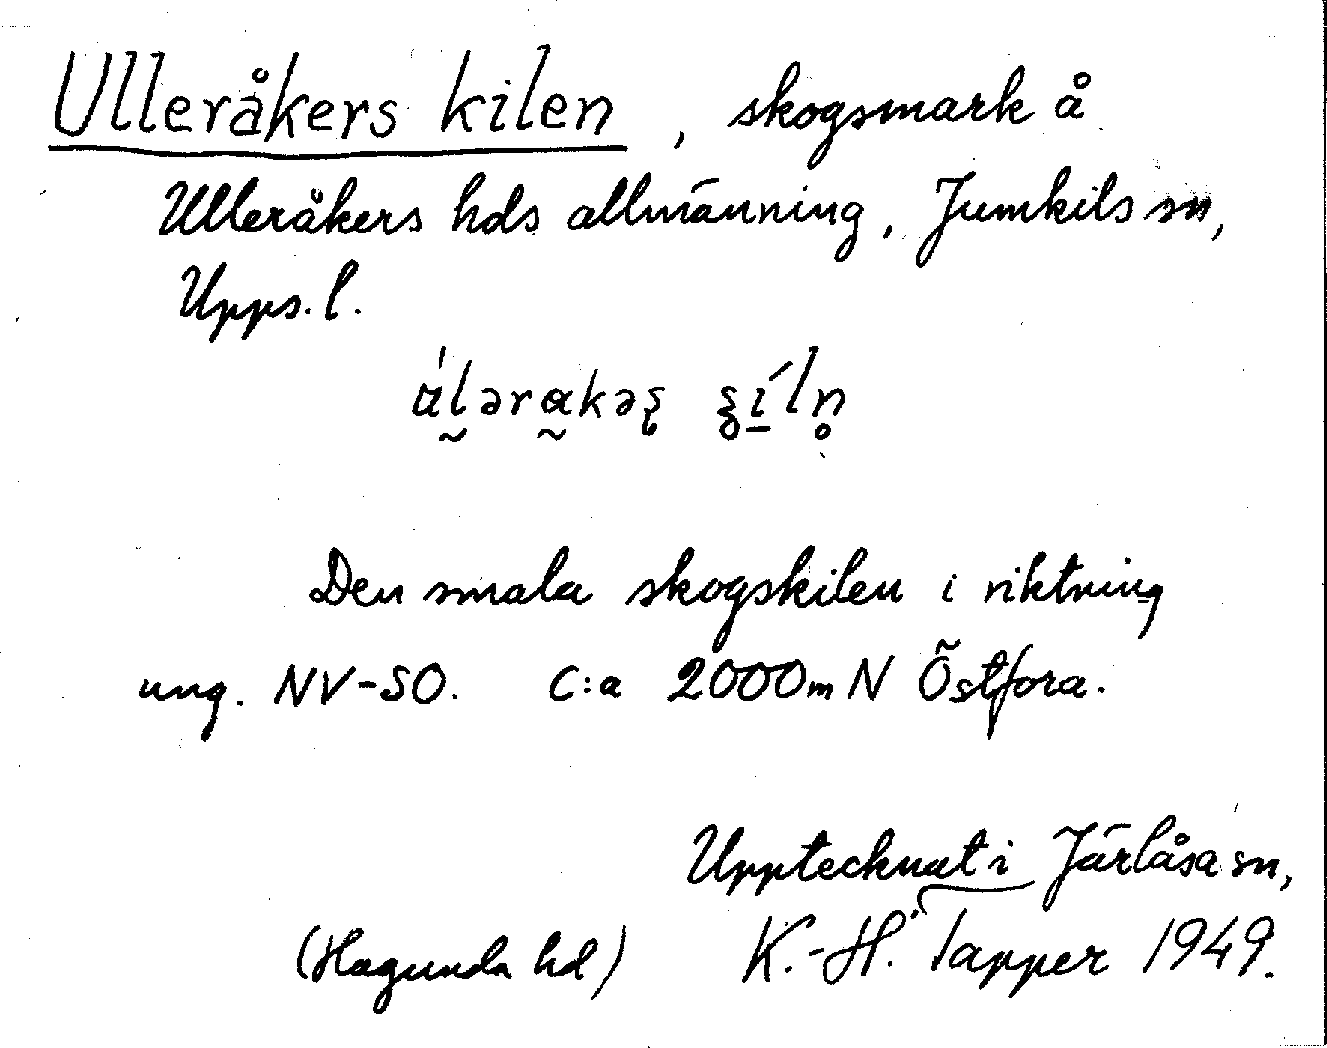 Ulleråkers kilen, skogsmark å
Ulleråkers hds allmänning, Jumkils sn,
Upps. l.
Den smala skogskilen i riktning
ung. NV-SO. C:a 2000m N Östfora.
Upptecknat i Järlåsa sn,
(Hagunda hd) K.-H. Tapper 1949.